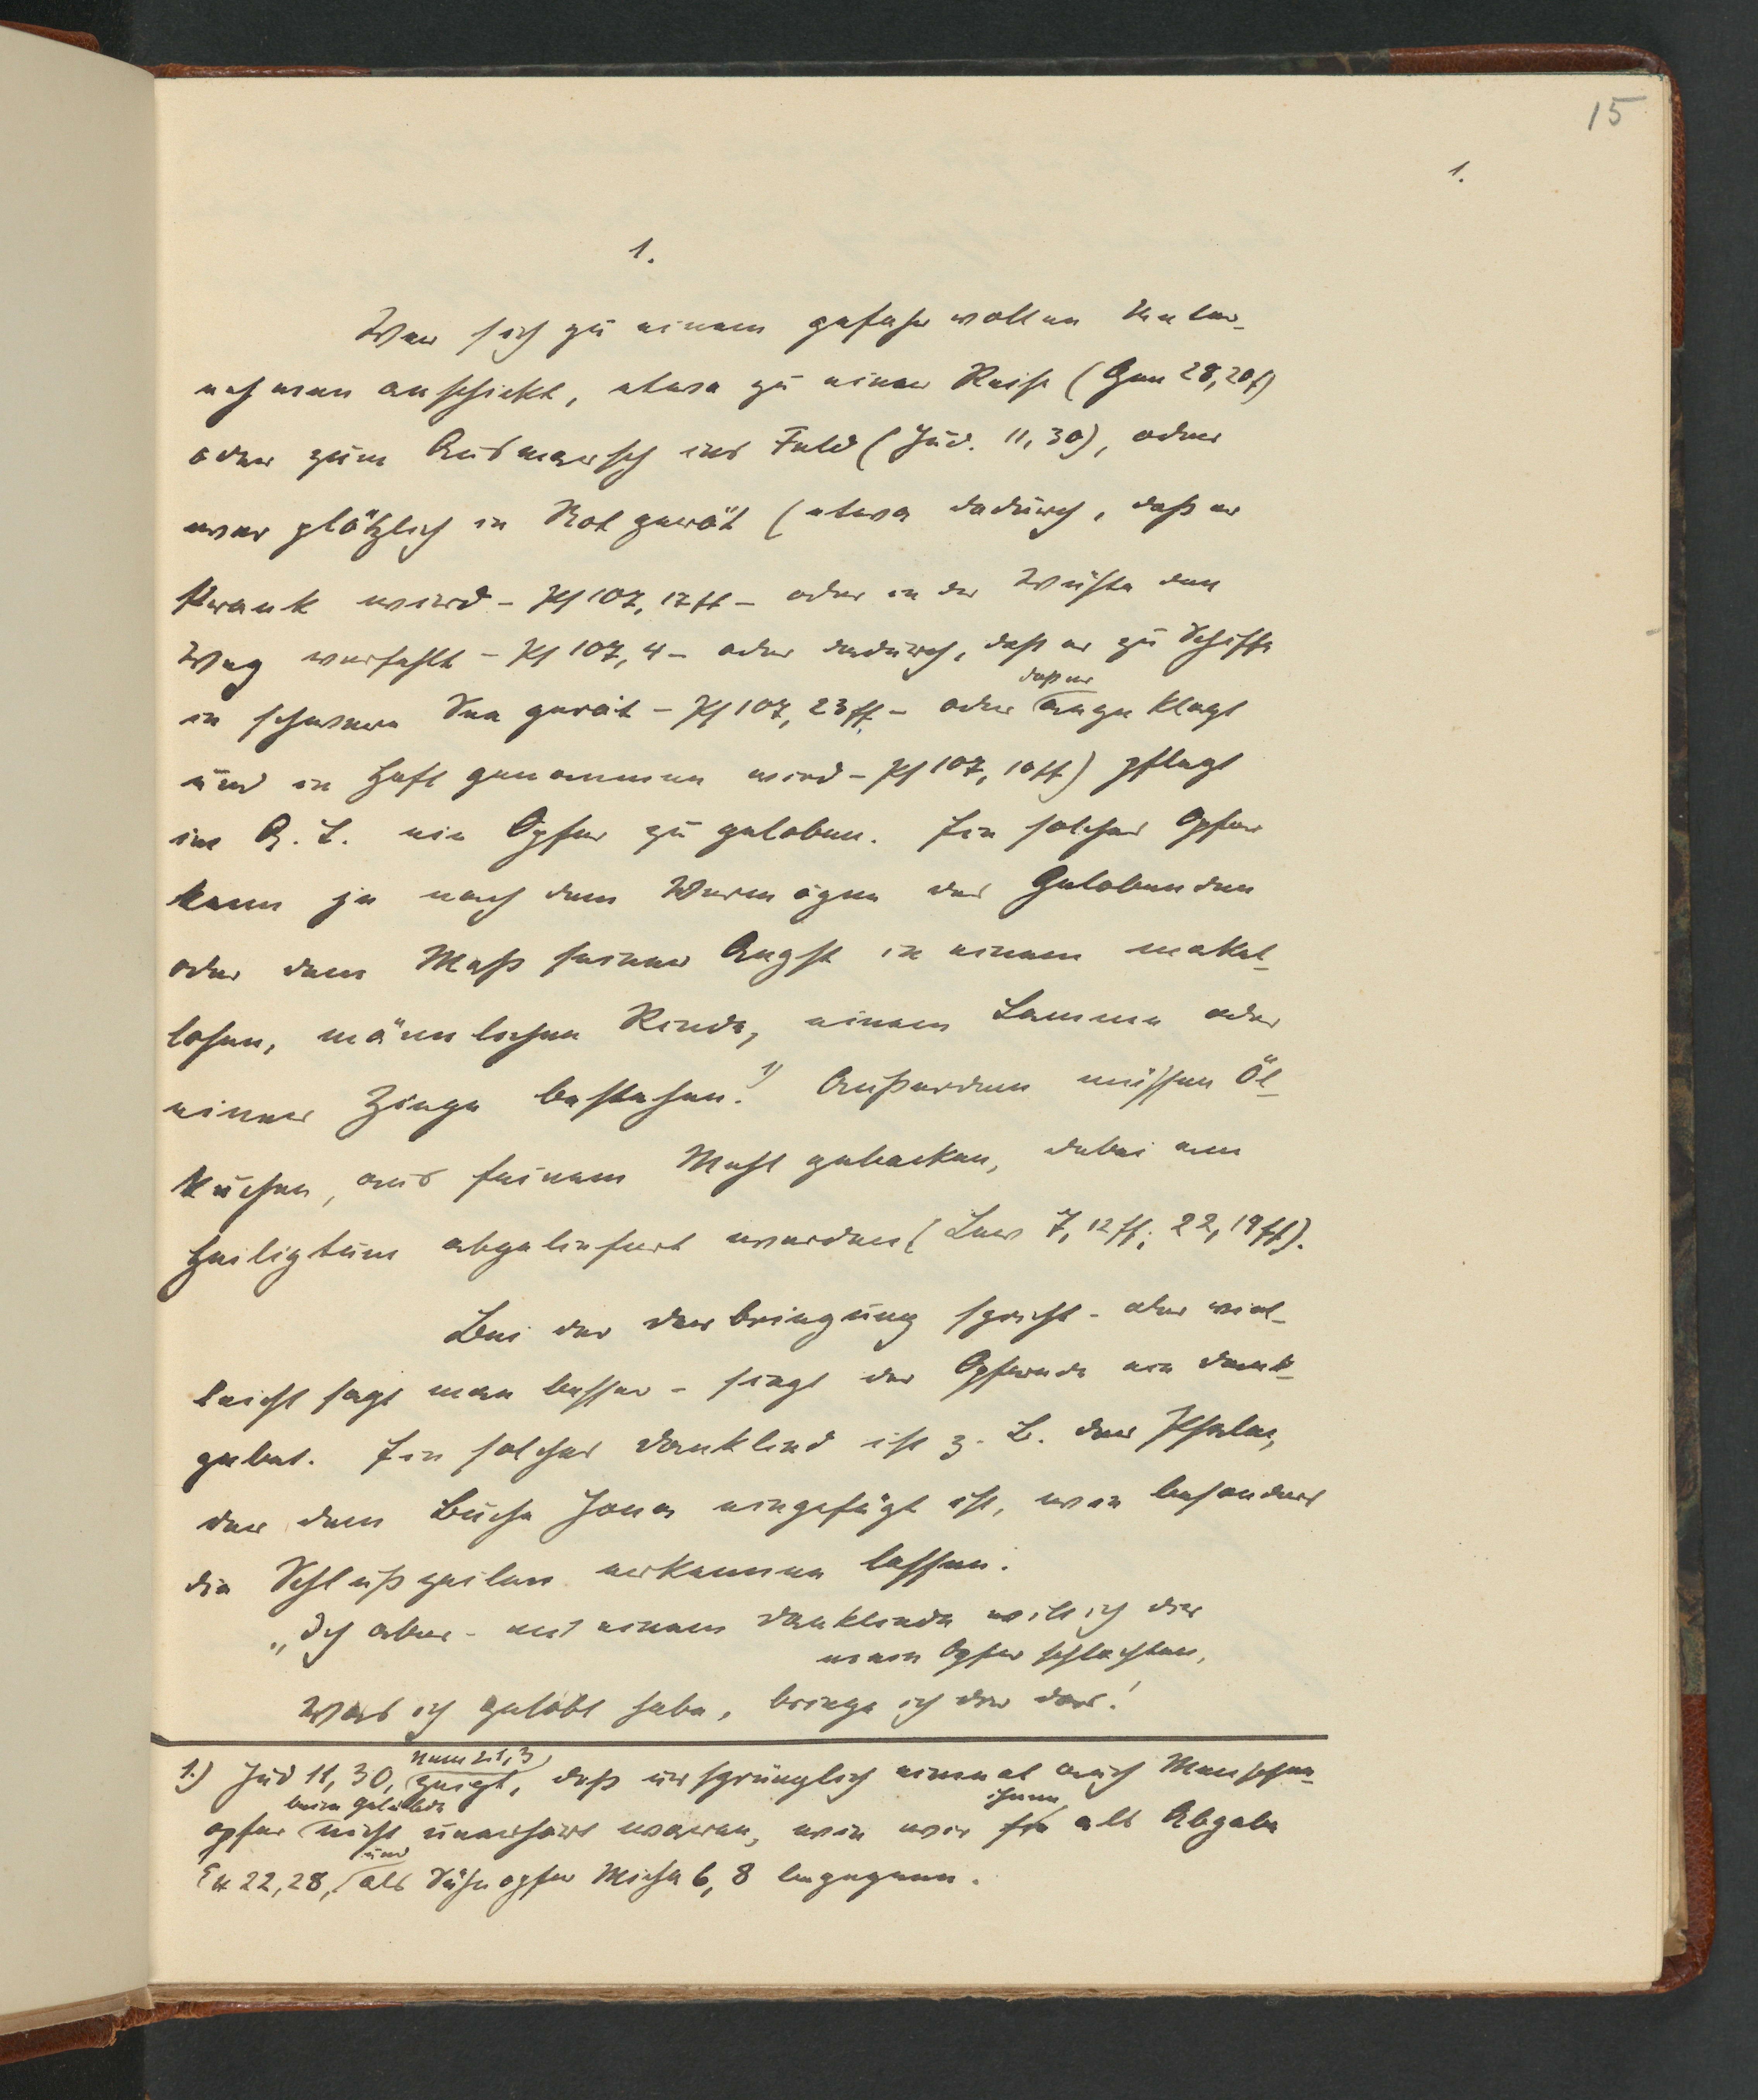 15
1.
1.
Wer sich zu einem gefahrvollen Unter-
nehmen anschickt, etwa zu einer Reise (Gen 28,20f)
oder zum Ausmarsch ins Feld (Jud. 11,30), oder
wer plötzlich in Not gerät (etwa dadurch, daß er
krank wird - Ps 107, 17ff - oder in der Wüste den
Weg verfehlt - Ps 107, 4 - oder dadurch, daß er zu Schiffe
daß er
in schwere See gerät - Ps 107, 23ff. - oder angeklagt
und in Haft genommen wird - Ps 107, 10ff) pflegt
im A. T. ein Opfer zu geloben. Ein solches Opfer
kann je nach dem Vermögen des Gelobenden
oder dem Maß seiner Angst in einem makel-
losen, männlichen Rinde, einem Lamme oder
einer Ziege bestehen.1) Außerdem müssen Öl-
kuchen, aus feinem Mehl gebacken, dabei am
Heiligtum abgeliefert werden (Lev 7, 12ff; 22, 19ff).
Bei der Darbringung spricht - oder viel-
leicht sagt man besser - singt der Opfernde ein Dank-
gebet. Ein solches Danklied ist z. B. der Psalm,
der dem Buche Jona eingefügt ist, wie besonders
die Schlußzeilen erkennen lassen.
„Ich aber - mit einem Dankliede will ich dir
mein Opfer schlachten,
Was ich gelobt habe, bringe ich dir dar!
Num 21,3
1.) Jud 11, 30, zeigt, daß ursprünglich einmal auch Menschen-
beim Gelübde
ihnen
opfer nicht unerhört waren, wie wir sie als Abgabe
und
Ex 22, 28, als Sühnopfer Micha 6, 8 begegnen.